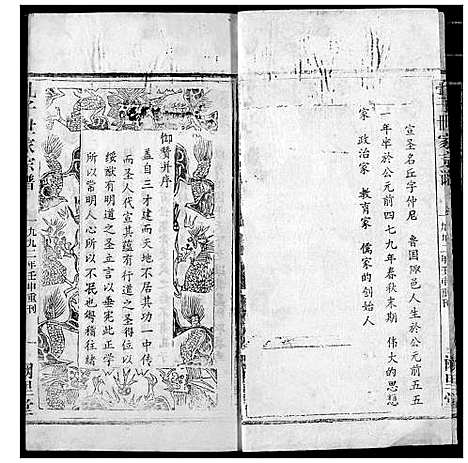 宣圣名丘字仲尼 鲁国陬邑人生於公元前五五
一年卒於公元前四七九年春秋末期 伟大的思想
家 政治家 教育家 儒家的创始人
御赞并序
盖自三才建而天地不居其功一中传
而圣人代宣其蕴有行道之圣得位以
绥猷有明道之圣立言以垂宪此正学
所以常明人心所以不泯也粤稽往绪
孔子世家宗谱
一九九二年壬申重刊